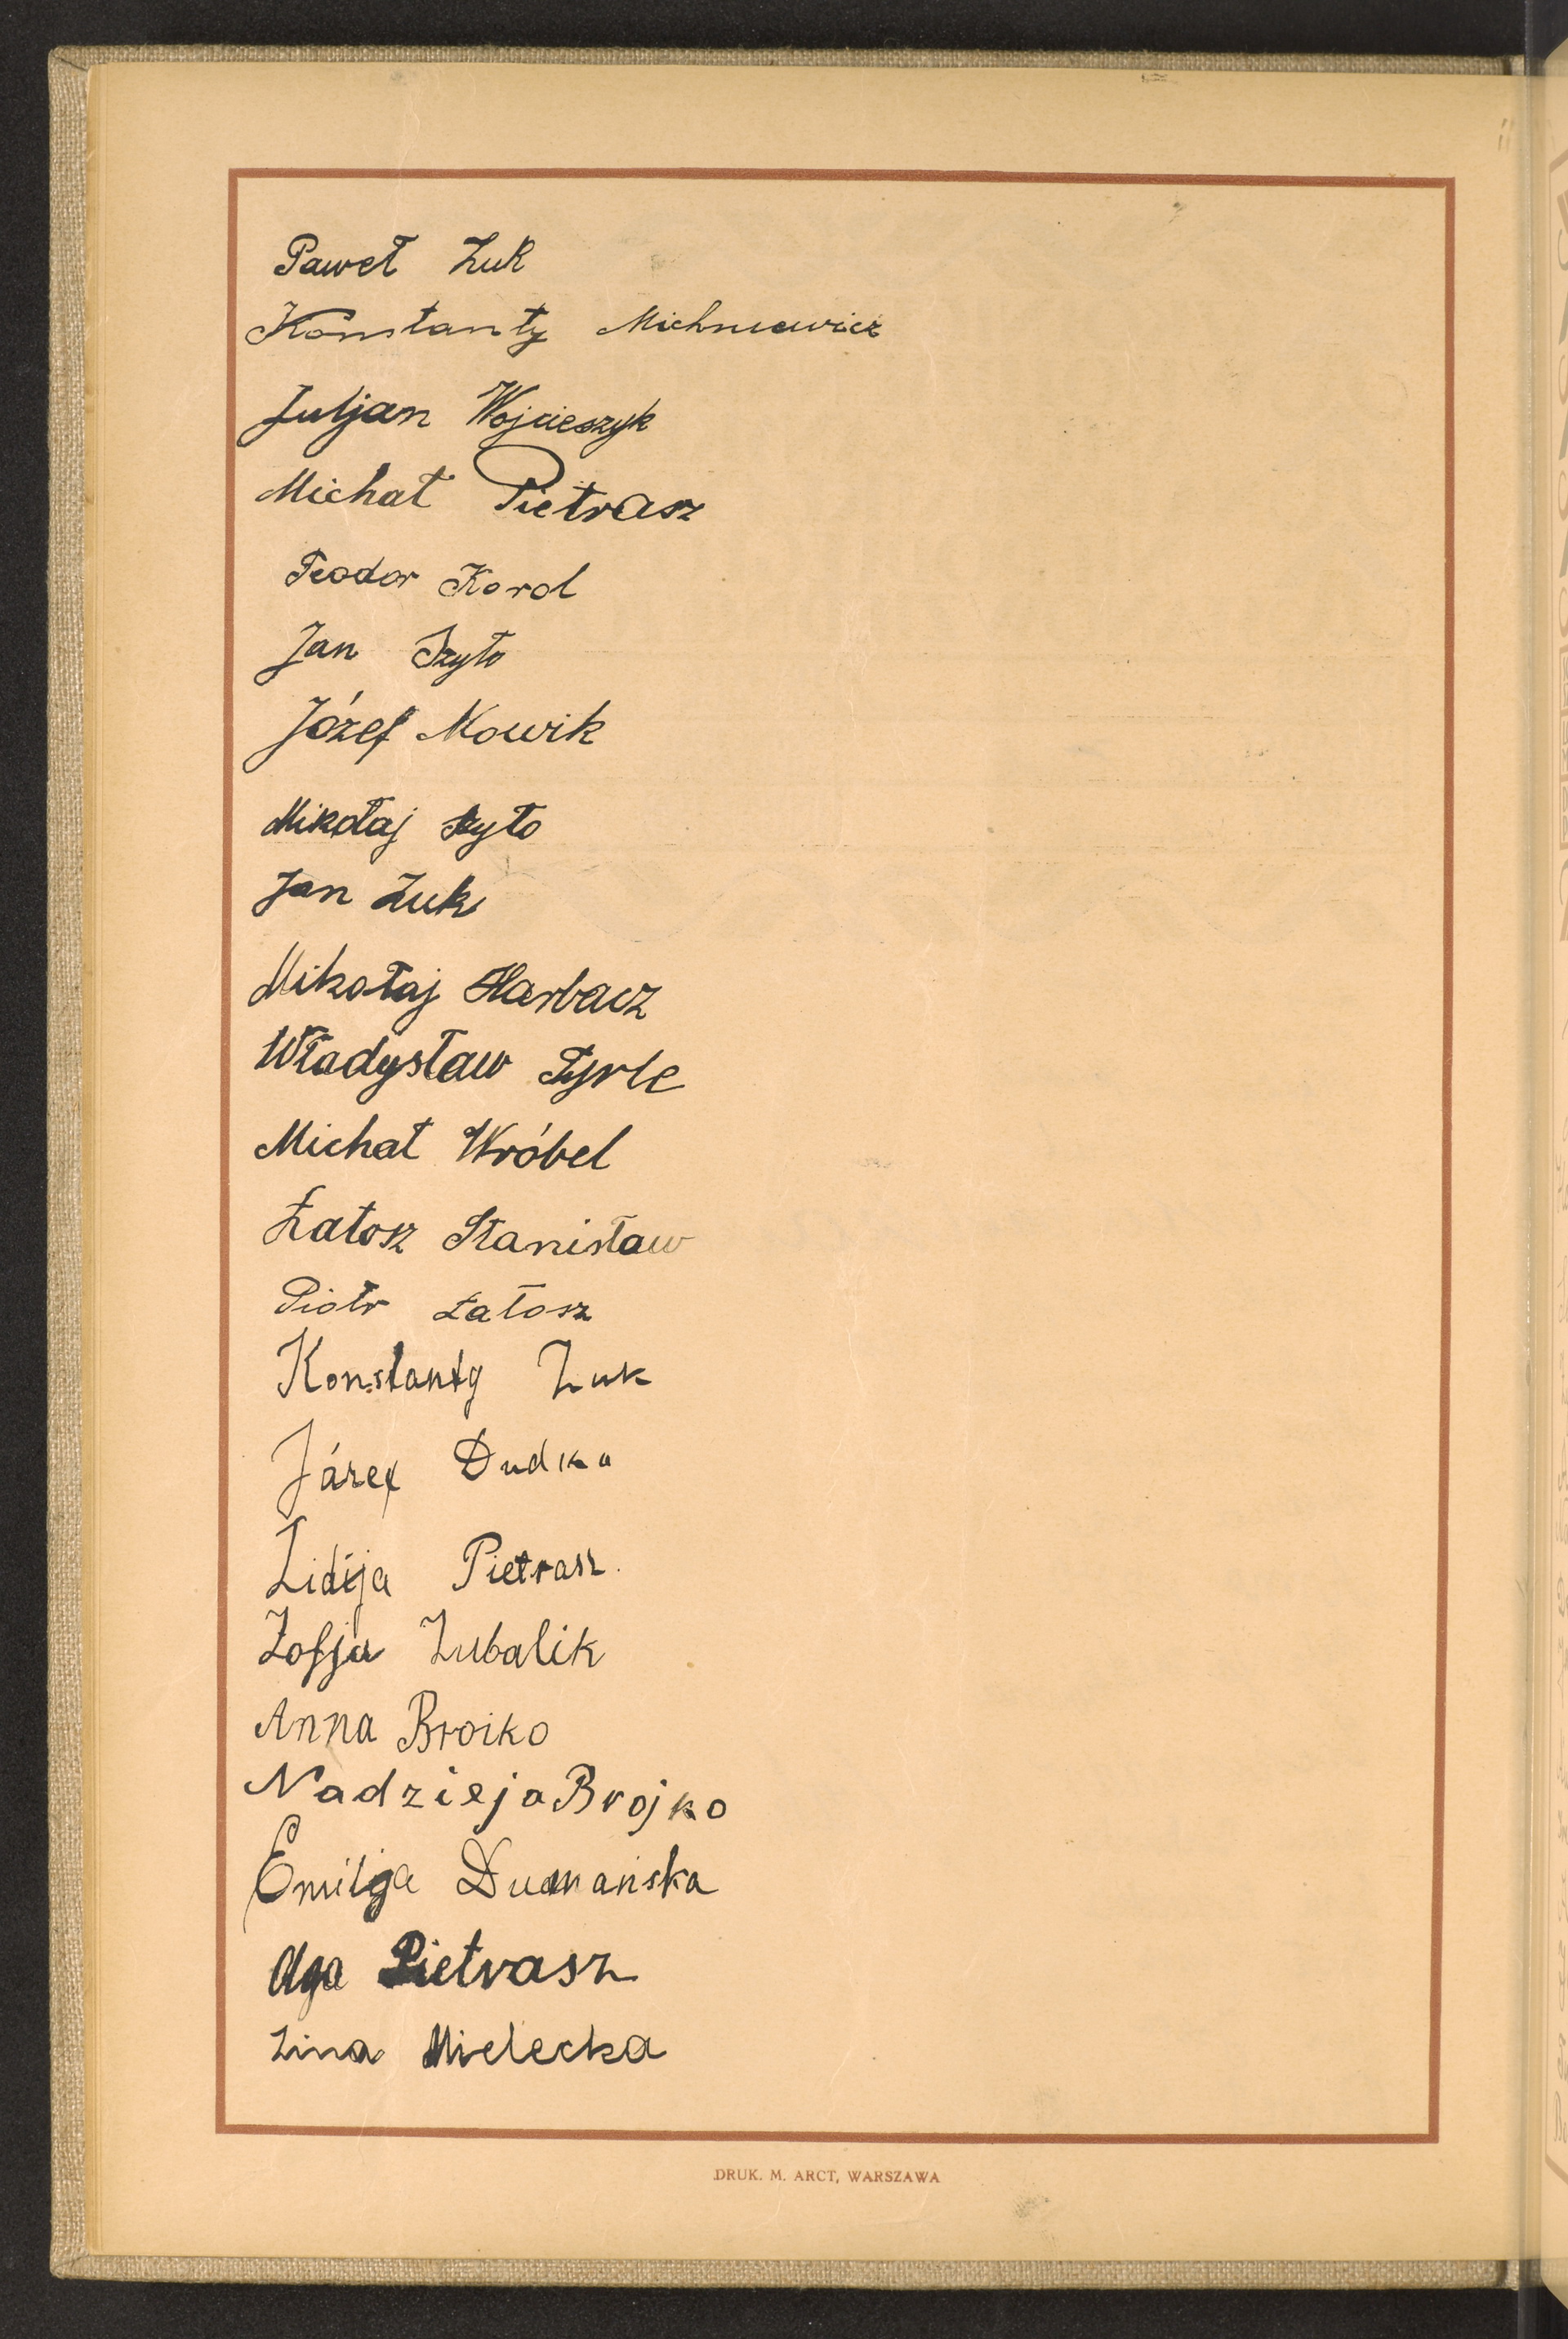 Paweł Żuk
Konstanty Michniewicz
Juljan Wojcieszyk
Michał Pietrasz
Teodor Korol
Jan Szyło
Józef Nowik
Mikołaj Szyło
Jan Żuk
Mikołaj Harbacz
Władysław Pyrle
Michał Wróbel
Łatosz Stanisław
Piotr Łatosz
Konstanty Żuk
Józef Dudka
Lidija Pietrasz.
Zofja Zubalik
Anna Broiko
Nadzieja Brojko
Emilja Dumańska
Olga Pietrasz
Zina Mielecka
DRUK. M. ARCT, WARSZAWA